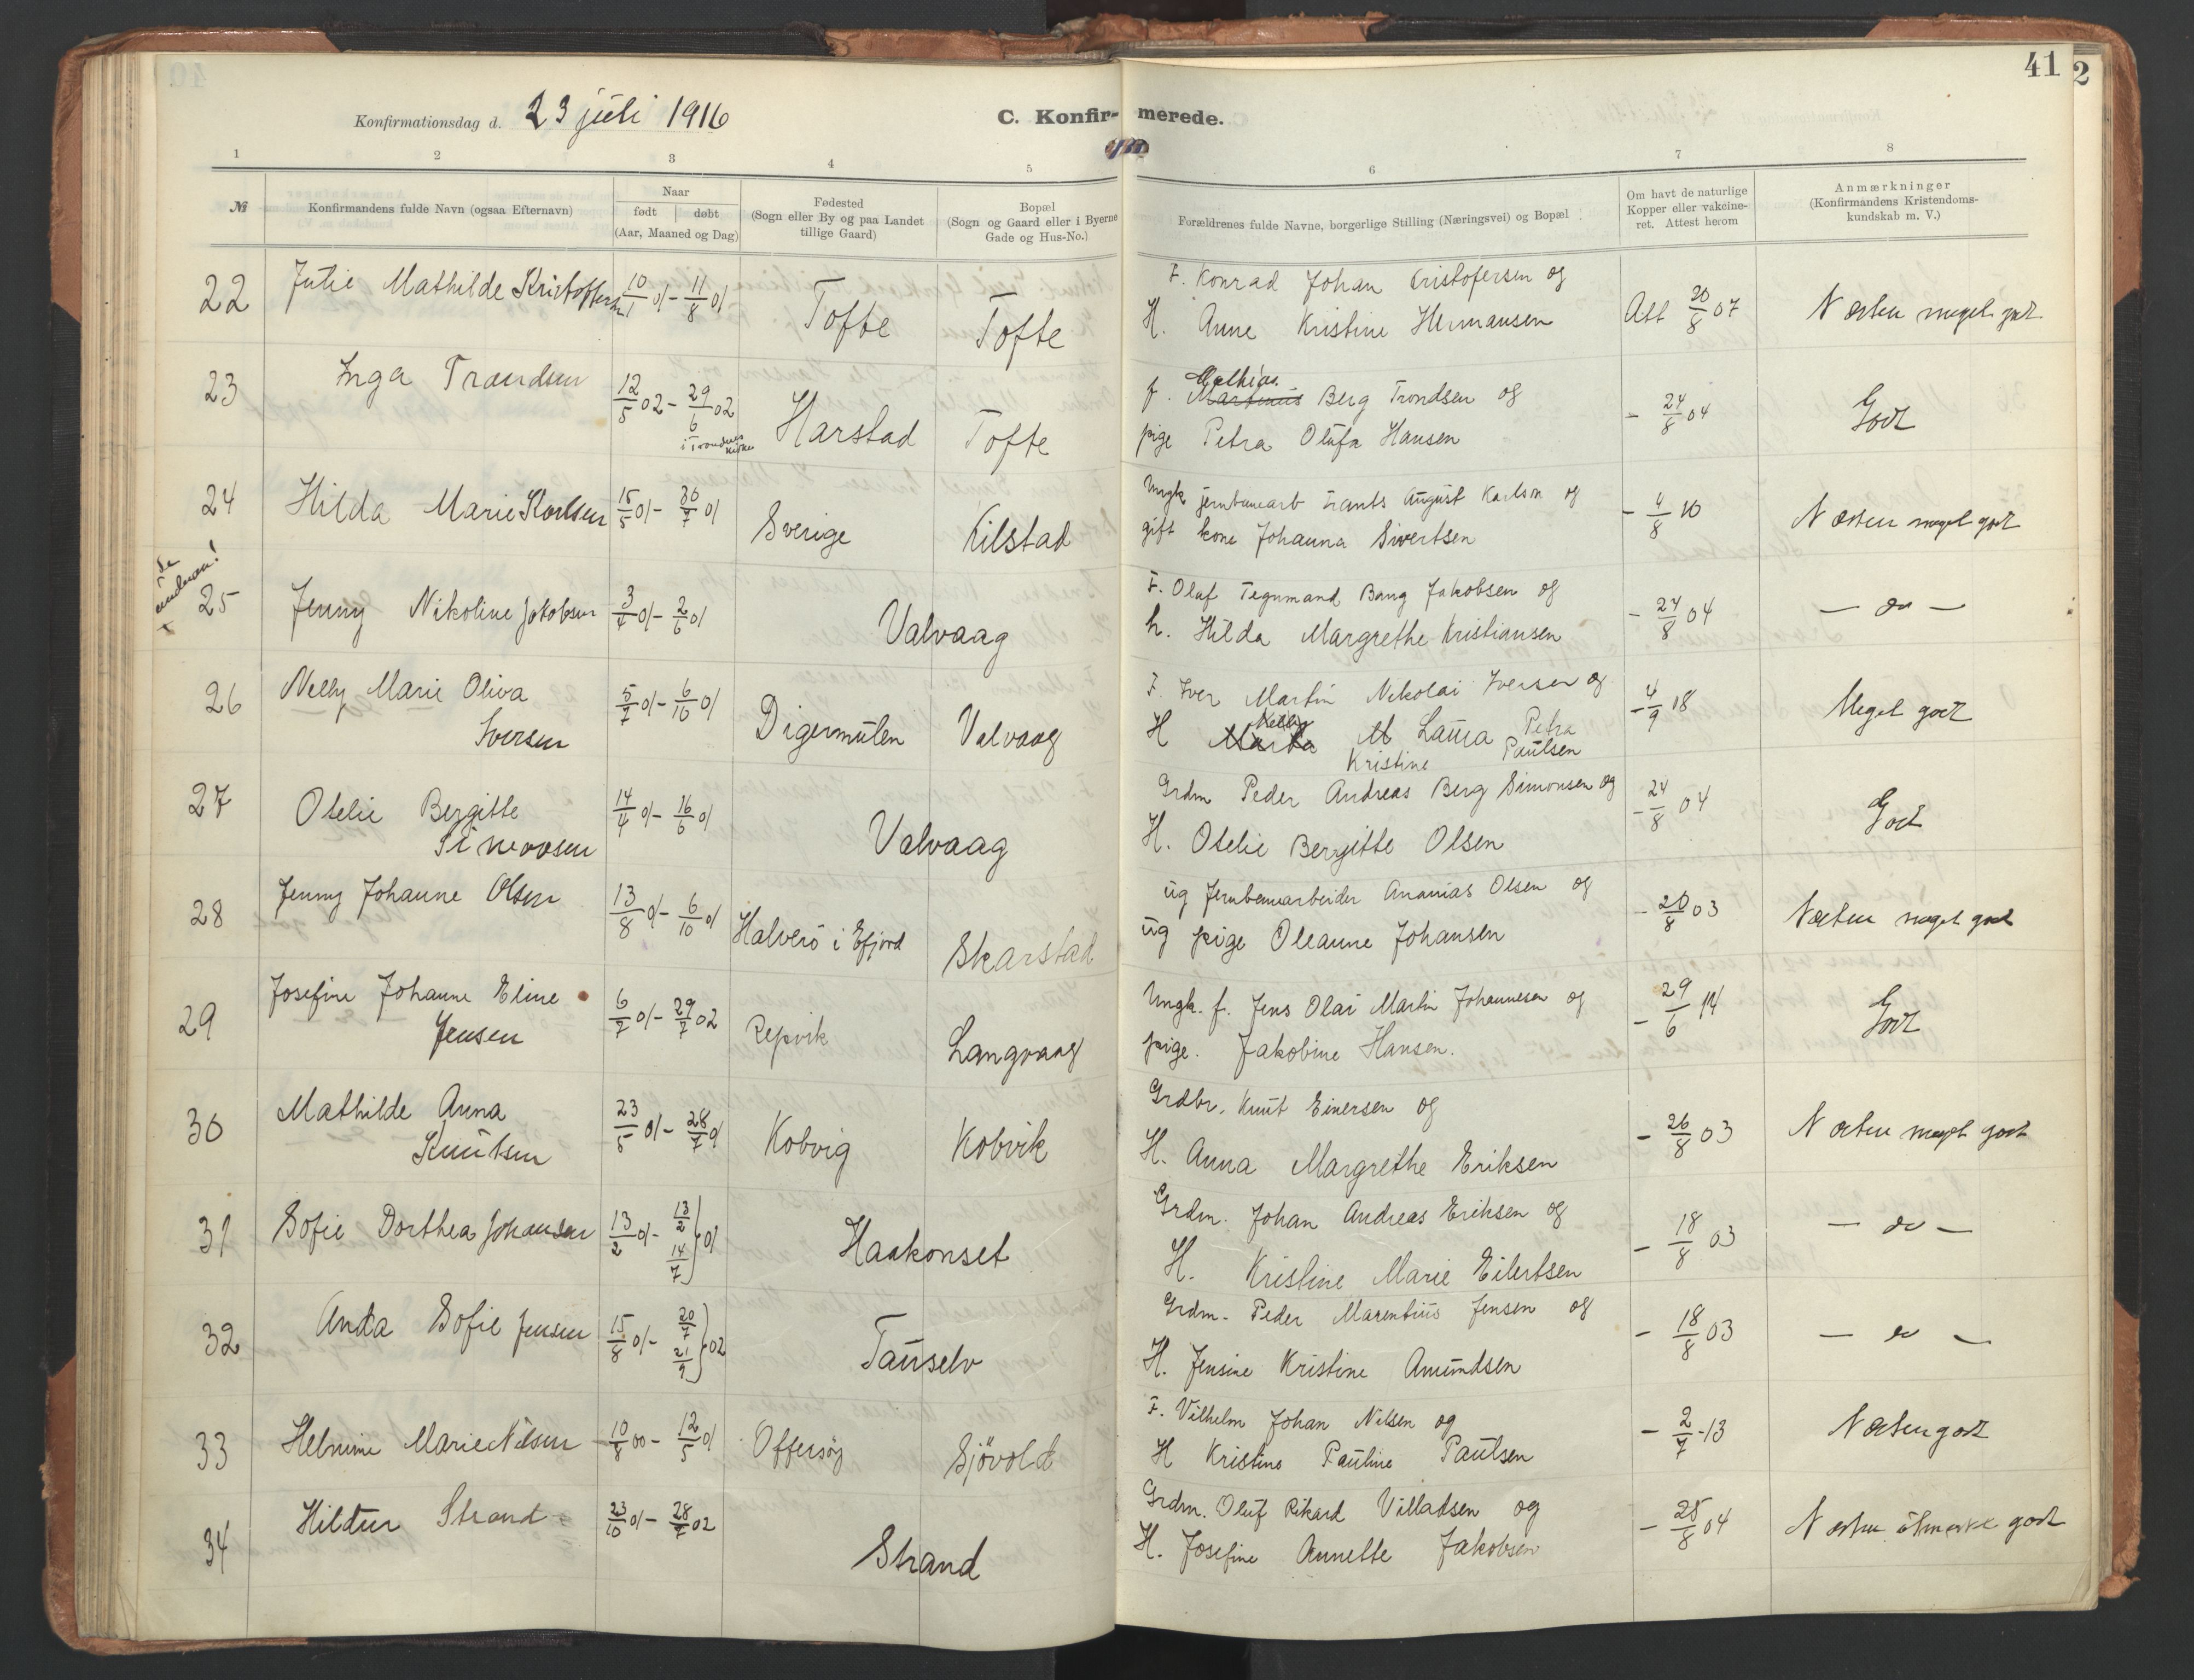 41
2
Konfirmationsdag d. 23 juli 1916
C. Konfirmerede.
1 2 3 4 5 6 7 8
№
Konfirmandens fulde Navn (ogsaa Efternavn)
Naar
født døbt
(Aar, Maaned og Dag)
Fødested
(Sogn eller By og paa Landet
tillige Gaard)
Bopæl
(Sogn og Gaard eller i Byerne
Gade og Hus-No.)
Forældrenes fulde Navne, borgerlige Stilling (Næringsvei) og Bopæl
Om havt de naturlige
Kopper eller vakcine-
ret. Attest herom
Anmærkninger
(Konfirmandens Kristendoms-
kundskab m. V.)
22 Julie Mathilde Kristoffersen 10/1 01 - 11/8 01 Tofte Tofte
F. Konrad Johan Kristofersen og
H. Anne Kristine Hermansen
Att 20/8 07 Næsten meget godt
23 Inga Trondsen 12/5 02 - 29/6 02
i Trondnes kirke
Harstad Tofte
Mathias
f. Martinus Berg Trondsen og
pige Petra Olufa Hansen
- 24/8 04 Godt
24 Hilda Marie Karlsen 15/5 01 - 30/7 01 Sverige Kilstad
Ungk jernbanearb Frants August Karlson og
gift kone Johanna Sivertsen
- 4/8 10 Næsten meget godt
25 Jenny Nikoline Jakobsen 3/4 01 - 2/6 01 Valvaag
F. Olaf Tegnmand Bang Jakobsen og
h. Hilda Margrethe Kristiansen
- 24/8 04 - do -
26 Nelly Marie Oliva
Iversen
5/7 01 - 6/10 01 Digermulen Valvaag
F. Iver Martin Nikolai Iversen og
H Marta Nelly M Laura Petra
Kristine Paulsen
- 4/9 18 Meget godt
27 Otelie Bergitte
Simonsen
14/4 01 - 16/6 01 Valvaag
Grdm Peder Andreas Berg Simonsen og
H. Otelie Bergitte Olsen
- 24/8 04 Godt
28 Jenny Johanne Olsen 13/8 01 - 6/10 01 Halverö i Efjord Skarstad
ug Jernbanearbeider Ananias Olsen og
ug pige Oleanne Johansen
- 20/8 03 Næsten meget godt
29 Josefine Johanne Eline
Jensen
6/7 01 - 29/7 02 Repvik Langvaag
Ungk. f. Jens Olai Martin Johannesen og
pige. Jakobine Hansen.
- 29/6 14 Godt
30 Mathilde Anna
Knutsen
23/5 01 - 28/7 01 Kobvig Kobvik
Grdbr. Knut Einersen og
H. Anna Margrethe Eriksen
- 26/8 03 Næsten meget godt
31 Sofie Dorthea Johansen 13/2 01 - 13/2 14/7 } 01 Haakonset
Grdm. Johan Andreas Eriksen og
H. Kristine Marie Eilertsen
- 18/8 03 - do -
32 Anda Sofie Jensen 15/8 01 - 20/7 21/9 } 02 Tauselv
Grdm. Peder Marentius Jensen og
H. Jensine Kristine Amundsen
- 18/8 03 - do -
33 Helmine Marie Nilsen 10/8 00 - 12/5 01 Offersøy Sjövold
F. Vilhelm Johan Nilsen og
H Kristine Pauline Paulsen
- 2/7 -13 Næsten godt
34 Hildur Strand 23/10 01 - 28/7 02 Strand
Grdm. Oluf Rikard Villadsen og
H. Josefine Annette Jakobsen
- 25/8 04 Næsten utmerket godt